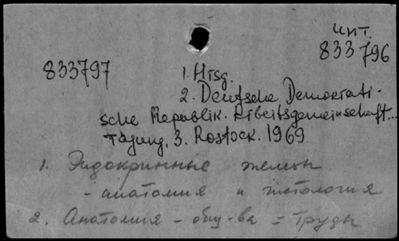 инт.
833796
833797
1. Hrsg.
2. Deutsche Demokrati-
sche Republik. Arbeitsgemeinschaft...
Tagung, 3. Rostock. 1969
1. Эндокринные железы
- анатомия и гистология
2. Анатомия - общ-ва = Труды